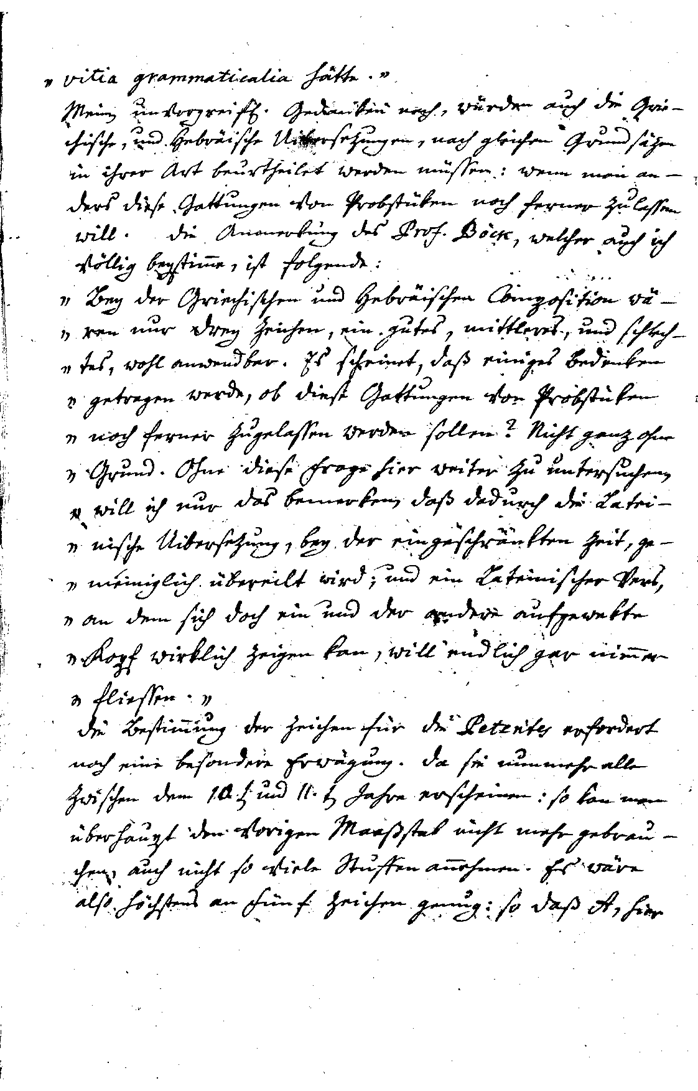 „ vitia grammaticalia hätte. „
Mein unvorgreifl. Gedanken nach, würden auch die Grie-
chische, und Hebräische Uibersetzungen, nach gleichen Grundsäzen
in ihrer Art beurtheilet werden müssen: wenn man an-
ders diese Gattungen von Probstüken noch ferner zulassen
will. Die Anmerkung des Prof. Böck, welcher auch ich
völlig beystimme, ist folgende:
„ Bey der Griechischen und Hebräischen Composition wä-
„ ren nur drey Zeichen, ein gutes, mittleres, und schlech-
„ tes, wohl anwendbar. Es scheinet, daß einiges Bedenken
„ getragen werde, ob diese Gattungen von Probstüken
„ noch ferner zugelassen werden sollen? Nicht ganz ohne
„ Grund. Ohne diese Frage hier weiter zu untersuchen,
„ will ich nur das bemerken, daß dadurch die Latei-
„ nische Uibersetzung, bey der eingeschränkten Zeit, ge-
„ meiniglich übereilt wird; und ein Lateinischer Vers,
„ an dem sich doch ein und der andere aufgewekte
„ Kopf wirklich zeigen kan, will endlich gar nimmer
„ fliessen. „
Die Bestimmung der Zeichen für die Petentes erfordert
noch eine besondere Erwägung. Da sie nunmehr alle
zwischen dem 10.t und 11.t Jahre erscheinen: so kan man
überhaupt den vorigen Maaßstab nicht mehr gebrau-
chen, auch nicht so viele Stuffen annehmen. Es wäre
also höchstens an fünf Zeichen genug: so daß A, hier